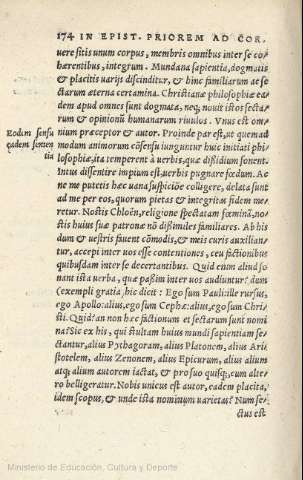 174 IN EPIST. PRIOREM AD COR.
uere sitis unum corpus, membris omnibus inter se co-
hærentibus, integrum. Mundana sapientia, dogmatis
& placitis uarijs discinditur, & hinc familiarum ac se
ctarum æterna certamina. Christianæ philosophiæ ea-
dem apud omnes sunt dogmata, neq; nouit istos secta-
rum & opinionū humanarum riuulos. Vnus est om-
nium præceptor & autor. Proinde par est, ut quemad
modum animorum cōsensu iunguntur huic initiati phi-
losophiæ, ita temperent à uerbis, quæ dißidium sonent.
Intus dissentire impium est: uerbis pugnare fœdum. Ac
ne me putetis hæc uana suspicióe colligere, delata sunt
ad me per eos, quorum pietas & integritas fidem me-
retur. Nostis Chloën, religione spectatam fœminā, no-
stis huius suæ patronæ nō dißimiles familiares. Ab his
dum & uestris fauent cōmodis, & meis curis auxilian-
tur, accepi inter uos esse contentiones, ceu factionibus
quibusdam inter se decertantibus. Quid enim aliud so-
nant ista uerba, quæ paßim inter uos audiuntur? dum
(exempli gratia) hic dicit: Ego sum Pauli: ille rursus,
ego Apollo: alius, ego sum Cephæ: alius, ego sum Chri-
sti. Quid? an non hæc factionum et sectarum sunt nomi
na? Sic ex his, qui stultam huius mundi sapientiam se-
ctantur, alius Pythagoram, alius Platonem, alius Ari
stotelem, alius Zenonem, alius Epicurum, alius alium
atq; alium autorem iactat, & pro suo quisq; cum alte-
ro belligeratur. Nobis unicus est autor, eadem placita,
idem scopus, & unde ista nominum uarietas? Num se-
ctus est
Eodim sensu
eadem senten
tia
Ministerio de Educación, Cultura y Deporte